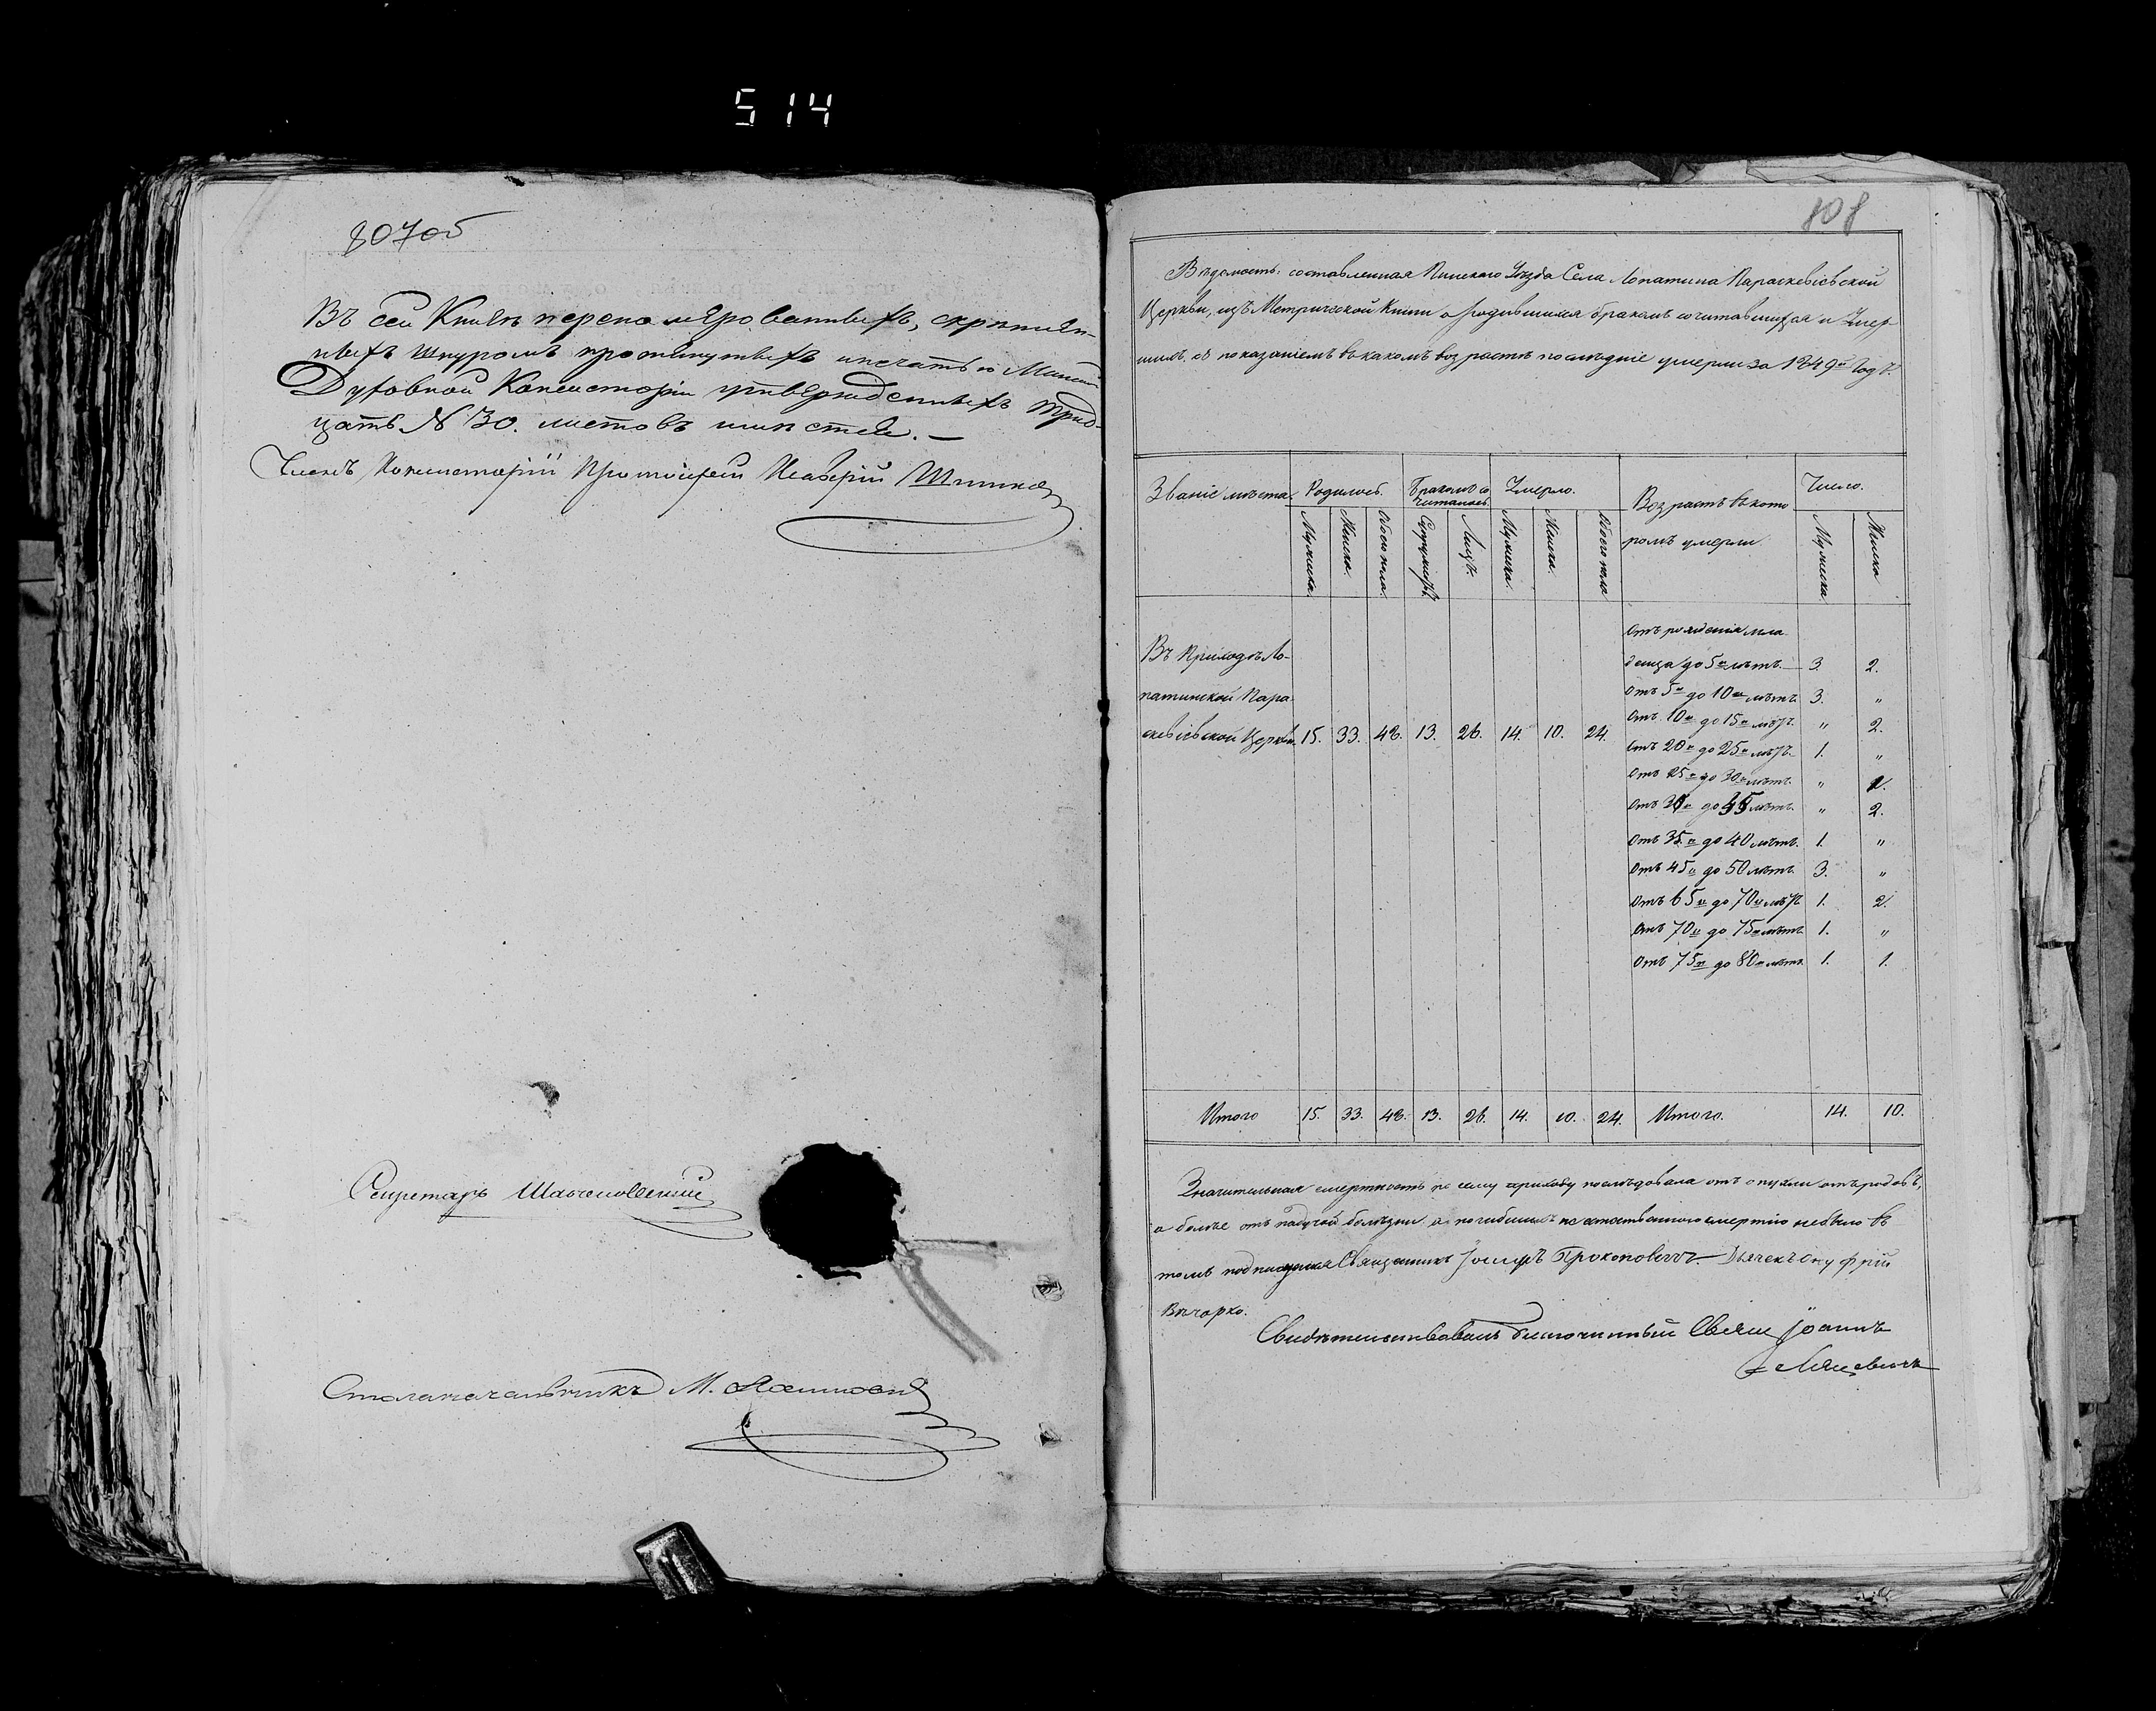 514
807 об
Въ сей Книгѣ перенумерованныхъ, скрѣплен-
ныхъ шнуромъ протянутыхъ и печатью Минской
Духовной Консисторіи утвержденныхъ трид-
цать № 30. листовъ
Членъ Консисторіи Протоіерей
Секретарь
Столоначальникъ М.
808
Вѣдомость, составленная Пинскаго Уѣзда Села Лопатина Параскевіевской
Церкви, изъ Метрической Книги о родившихся бракомъ сочитавшихся и Умер-
шихъ, съ показаніемъ въ какомъ возрастѣ послѣдніе умерли за 1849й Годъ.
Званіе мѣста. Родилось. Бракомъ со- Умерло. Возрастъ въ кото Число.
читалось.
ромъ умерли.
Мужска. Женска. Обоего пола. Супружествъ. Лицъ. Мужска. Женска. Обоего пола Мужска Женска
Отъ рожденія мла
Въ Приходѣ Ло-
денца до 5и лѣтъ. 3. 2.
патинской Пара
Отъ 5и до 10и лѣтъ 3. "
Отъ 10и до 15и лѣтъ. " 2.
скевіевской Церкви. 15. 33. 48. 13. 26. 14. 10. 24.
Отъ 20и до 25и лѣтъ. 1. "
Отъ 25и до 30и лѣтъ. " 1.
Отъ 30и до 35 лѣтъ. " 2.
Отъ 35и до 40 лѣтъ. 1. "
Отъ 45и до 50 лѣтъ. 3. "
Отъ 65и до 70и лѣтъ 1. 2.
Отъ 70и до 75и лѣтъ 1. "
Отъ 75и до 80и лѣтъ 1. 1.
Итого 15. 33. 48. 13. 26. 14. 10. 24. Итого. 14. 10.
Значительная смертность по сему приходу послѣдовала отъ опухли отъ родовъ,
а болѣе отъ падучей болѣзни, а погибшихъ неестественною смертію небыло въ
томъ подписуемся Священникъ Іосифъ Прокоповичъ. Дьячекъ Онуфрій
Вечорко.
Свидѣтельствовалъ благочинный Свящ Іоаннъ